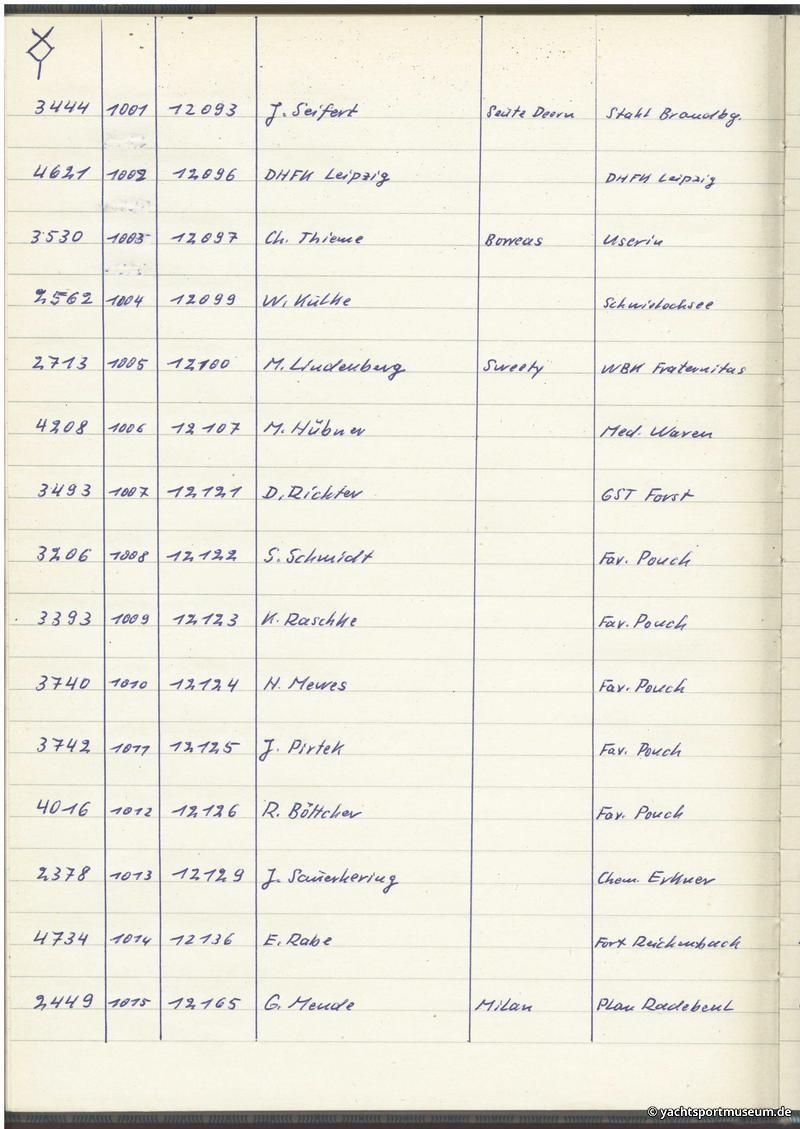 3444 1001 12093 J. Seifert Seute Deern Stahl Brandbg.
4621 1002 12096 DHFK Leipzig DHFK Leipzig
3530 1003 12097 Ch. Thieme Borreas Userin
2562 1004 12099 W. Külke Schwielochsee
2713 1005 12100 M. Lindenberg Sweety WBK Fraternitas
4208 1006 12107 M. Hübner Med. Waren
3493 1007 12121 D. Richter GST Forst
3206 1008 12122 S. Schmidt Fav. Pouch
3393 1009 12123 K. Raschke Fav. Pouch
3740 1010 12124 H. Mewes Fav. Pouch
3742 1011 12125 J. Pirtek Fav. Pouch
4016 1012 12126 R. Böttcher Fav. Pouch
2378 1013 12129 J. Sauerhering Chem. Erkner
4734 1014 12136 E. Rabe Fort Reichenbach
2449 1015 12165 G. Mende Milan Plan Radebeul
© yachtsportmuseum.de